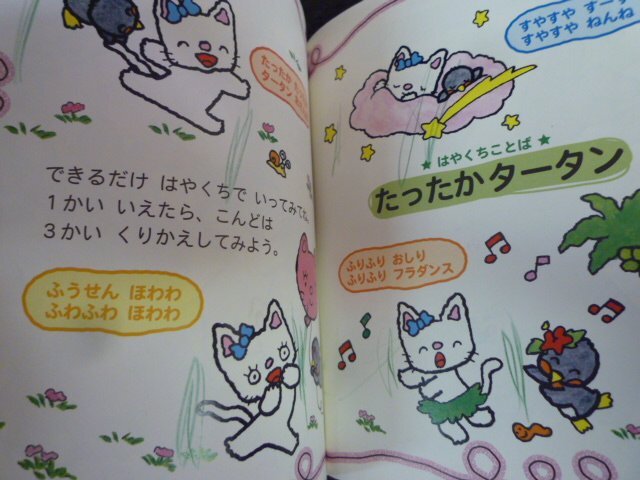 たったか
タータン
できるだけ はやくちで いってみてね。
1かい いえたら、こんどは
3かい くりかえしてみよう。
ふうせん ほわわ
ふわふわ ほわわ
すやすや すーす
すやすや ねんね
★ はやくちことば ★
たったかタータン
ふりふり おしり
ふりふり フラダンス